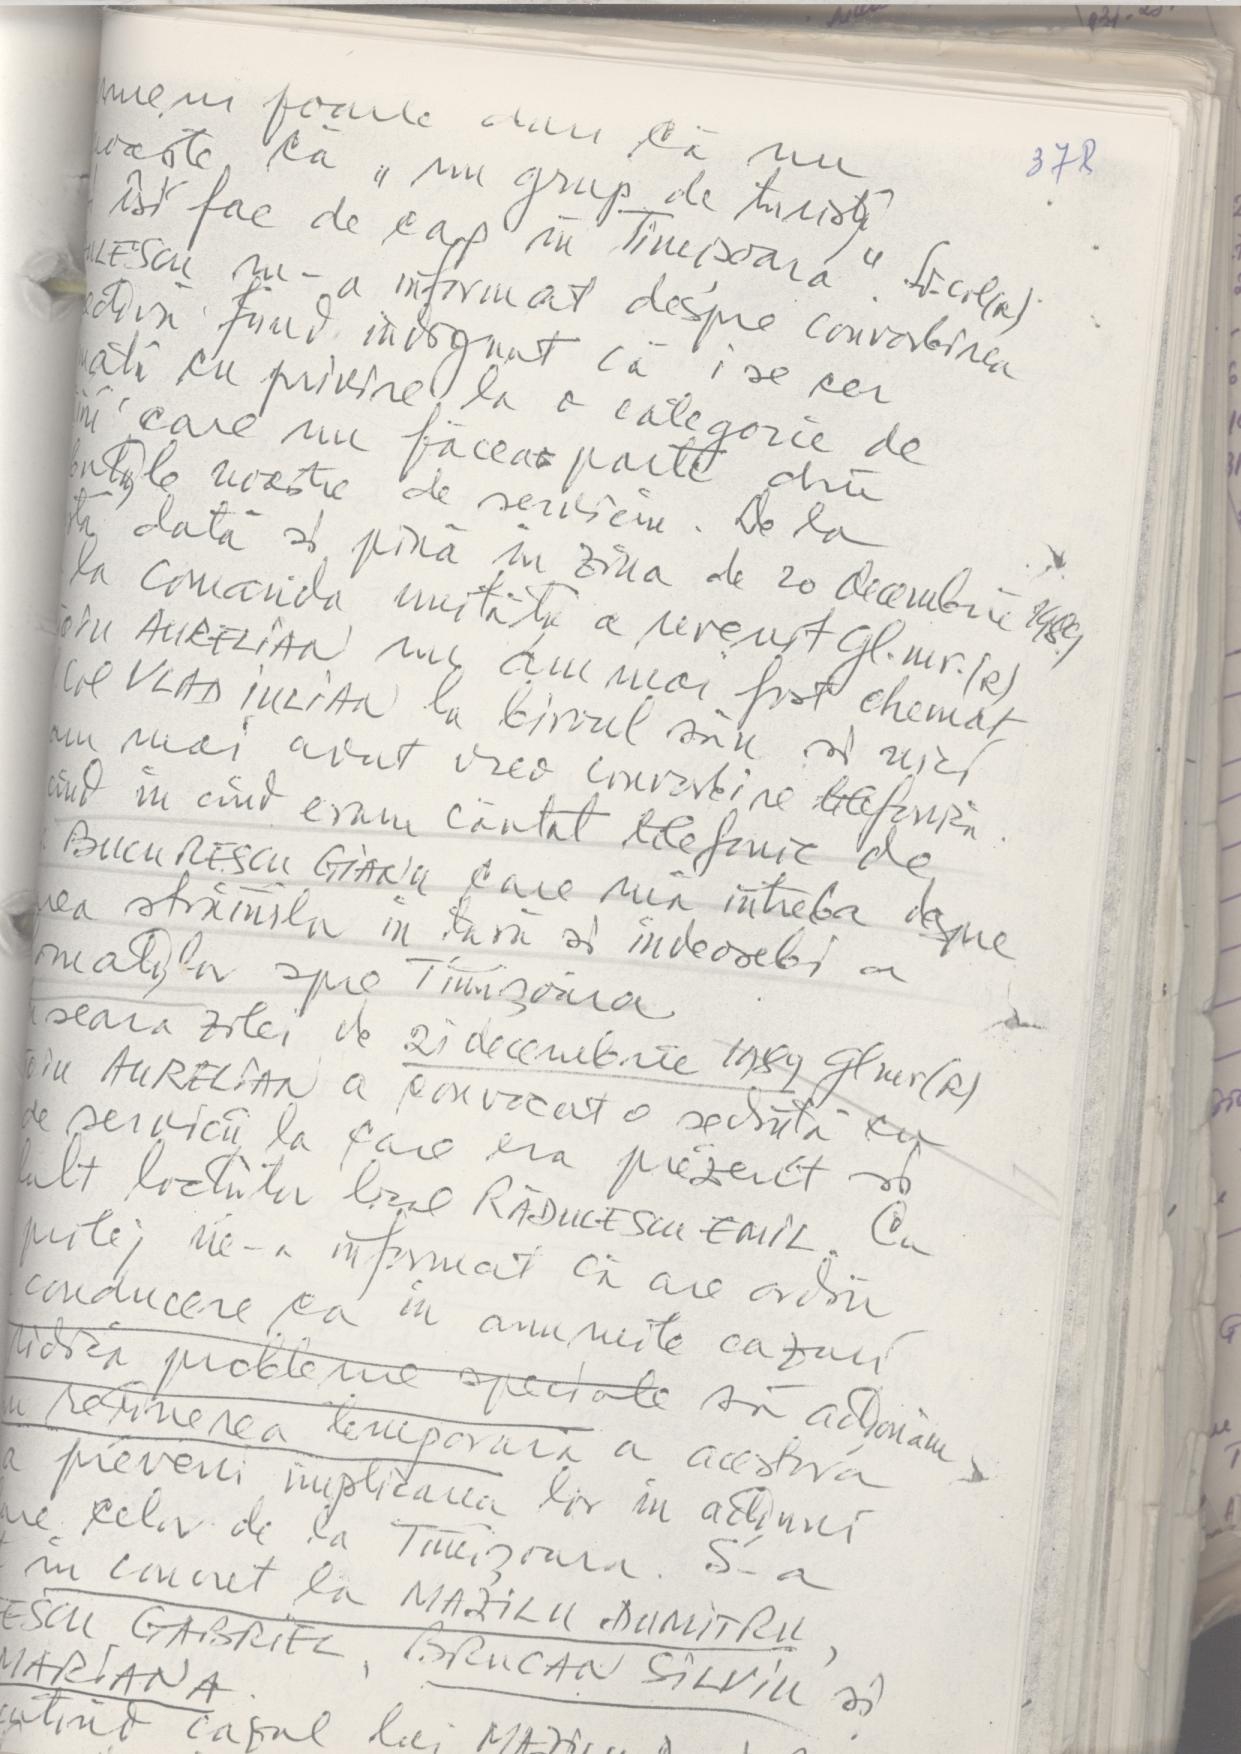 378
oameni foarte dari că nu
noaște că „un grup de turiști
își fac de cap în Timișoara". Lt-col(R)
ULESCU m-a informat despre convorbirea
fiind indignat că i se cer
mații cu privire la o categorie de
care nu făcea parte din
le noastre de serviciu. De la
tă dată și pînă în ziua de 20 decembrie 1989
la comanda unității a revenit Gl.mr.(R)
oiu AURELIAN nu am mai fost chemat
col VLAD IULIAN la biroul său și nici
am mai avut vreo convorbire telefonică.
cînd în cînd eram căutat telefonic de
BUCURESCU GIANU care mă întreba despre
rea străinilor în țară și îndeosebi a
omaților spre Timișoara
seara zilei de 21 decembrie 1989 Gl mr(R)
oiu AURELIAN a convocat o ședință cu
de servicii la care era prezent și
lalt locțiitor lt.col RĂDULESCU EMIL. Cu
prilej ne-a informat că are ordin
conducere ca în anumite cazuri
ridică probleme speciale să acționăm
reținerea temporară a acestora
a preveni implicarea lor în acțiuni
are celor de la Timișoara. S-a
t în concret la MAZILU DUMITRU,
ESCU GABRIEL, BRUCAN SILVIU și
MARIANA.
cazul lui